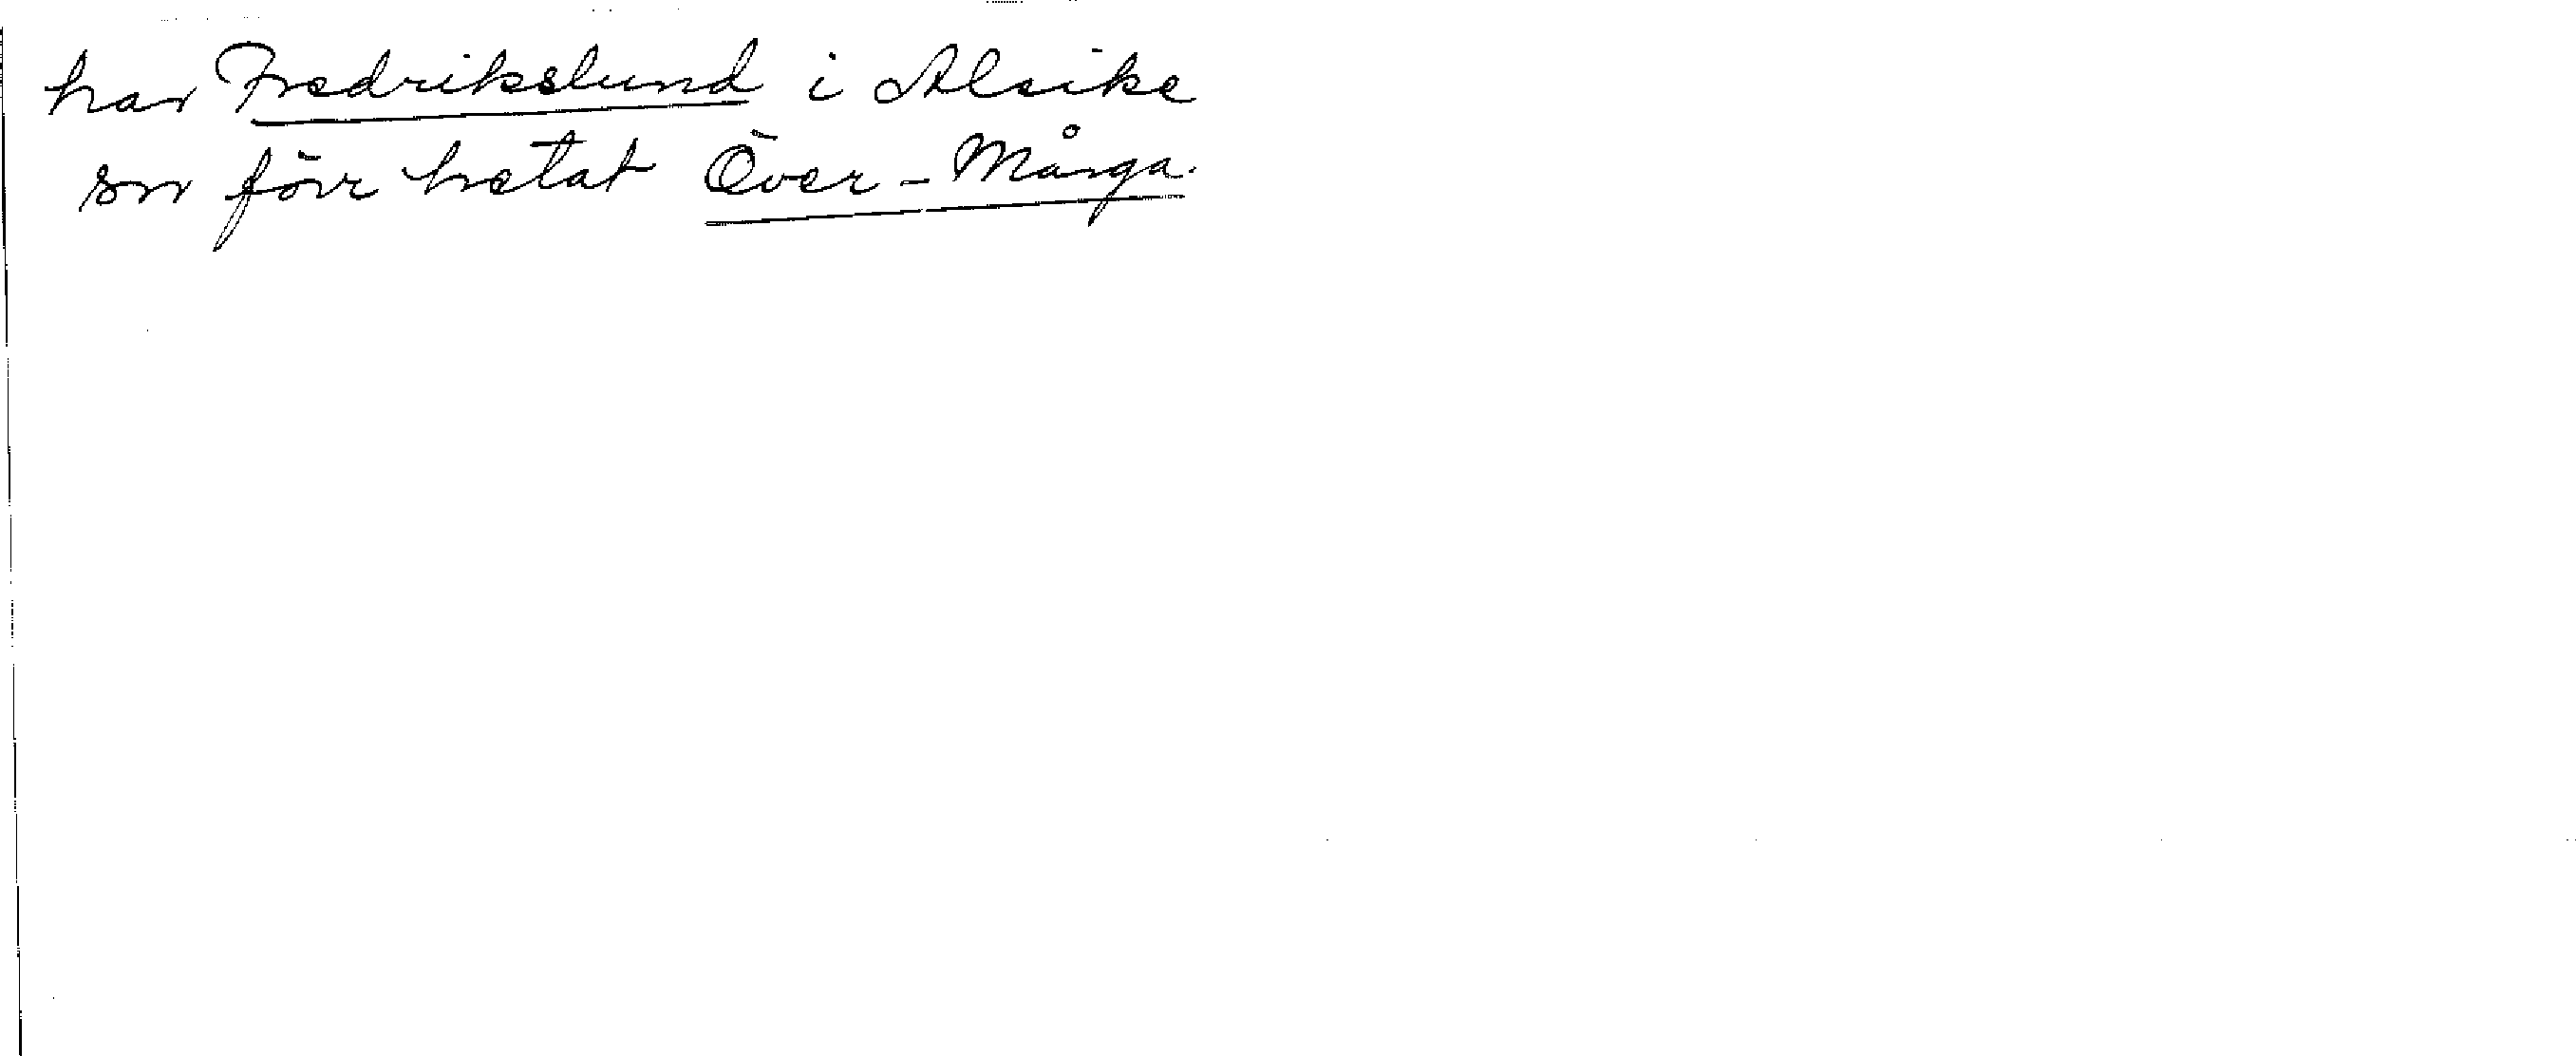 har Fredrikslund i Alsike
sn förr hetat Över-Många.